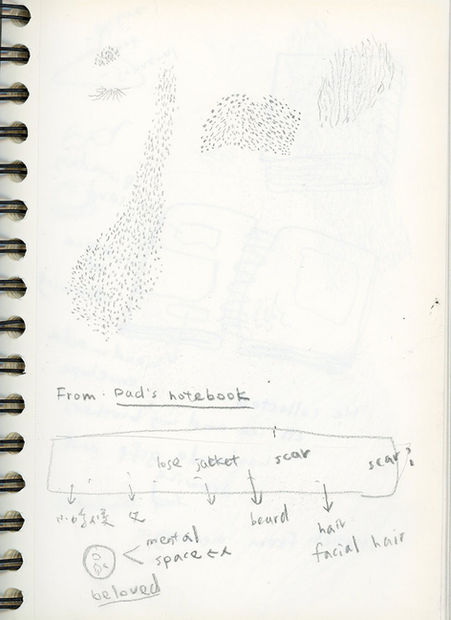 From. Dad's notebook
lose jacket scar scar?
beard
hair
facial hair
mental
space
beloved